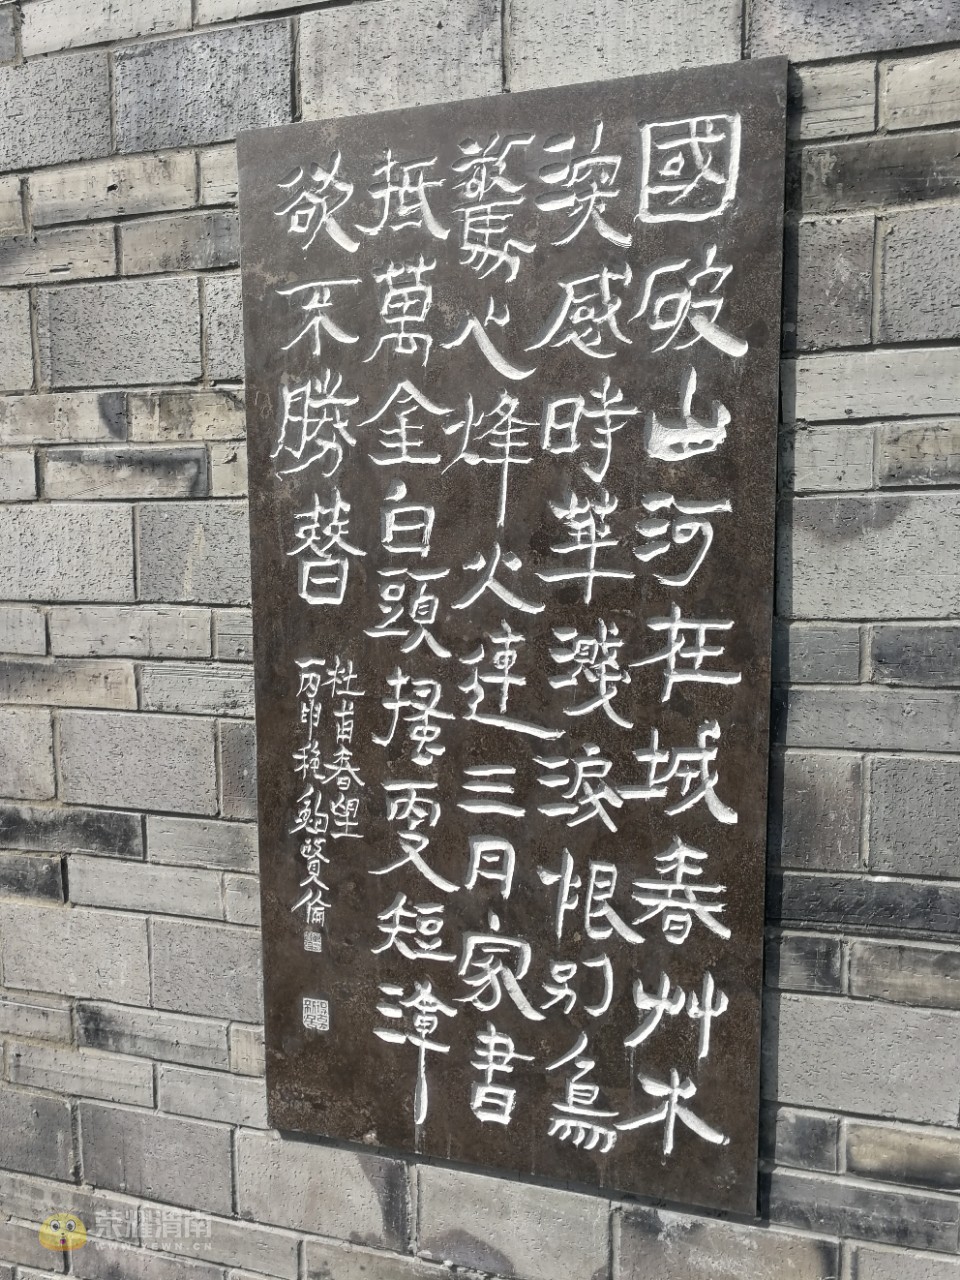 國破山河在城春艸木
深感時華濺淚恨別鳥
驚心烽火連三月家書
抵萬金白頭搔更短渾
欲不勝簪
杜甫春望
丙申穐鮑賢倫
荣耀渭南
WWW.YEWN.CN